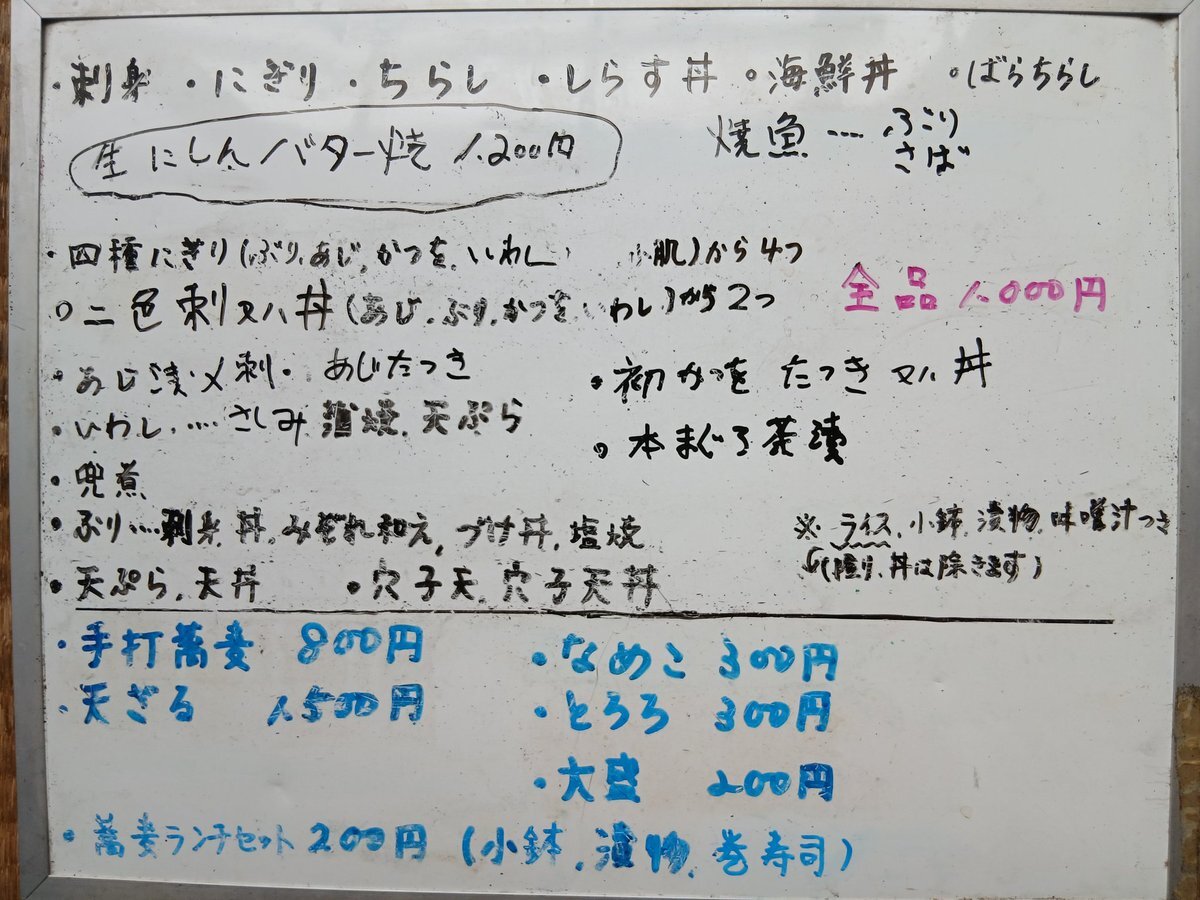 ・刺身 ・にぎり ・ちらし ・しらす丼 ・海鮮丼 ・ばらちらし
生にしんバター焼 1.200円
焼魚…… ぶり
さば
・四種にぎり(ぶり、あじ、かつを、いわし 小肌)から4つ
・二色刺又ハ丼(あじ、ぶり、かつを、いわし)から2つ
全品 1.000円
・あじ漬〆刺・ あじたつき
・初かつを たつき又ハ丼
・いわし……さしみ 蒲焼、天ぷら
・本まぐろ茶漬
・兜煮
・ぶり……刺身、丼、みぞれ和え、づけ丼、塩焼
※ライス、小鉢、漬物、味噌汁つき
(握り、丼は除きます)
・天ぷら、天丼 ・穴子天、穴子天丼
・手打蕎麦 800円
・なめこ 300円
・天ざる 1.500円
・とろろ 300円
・大盛 200円
・蕎麦ランチセット 200円 (小鉢、漬物、巻寿司)